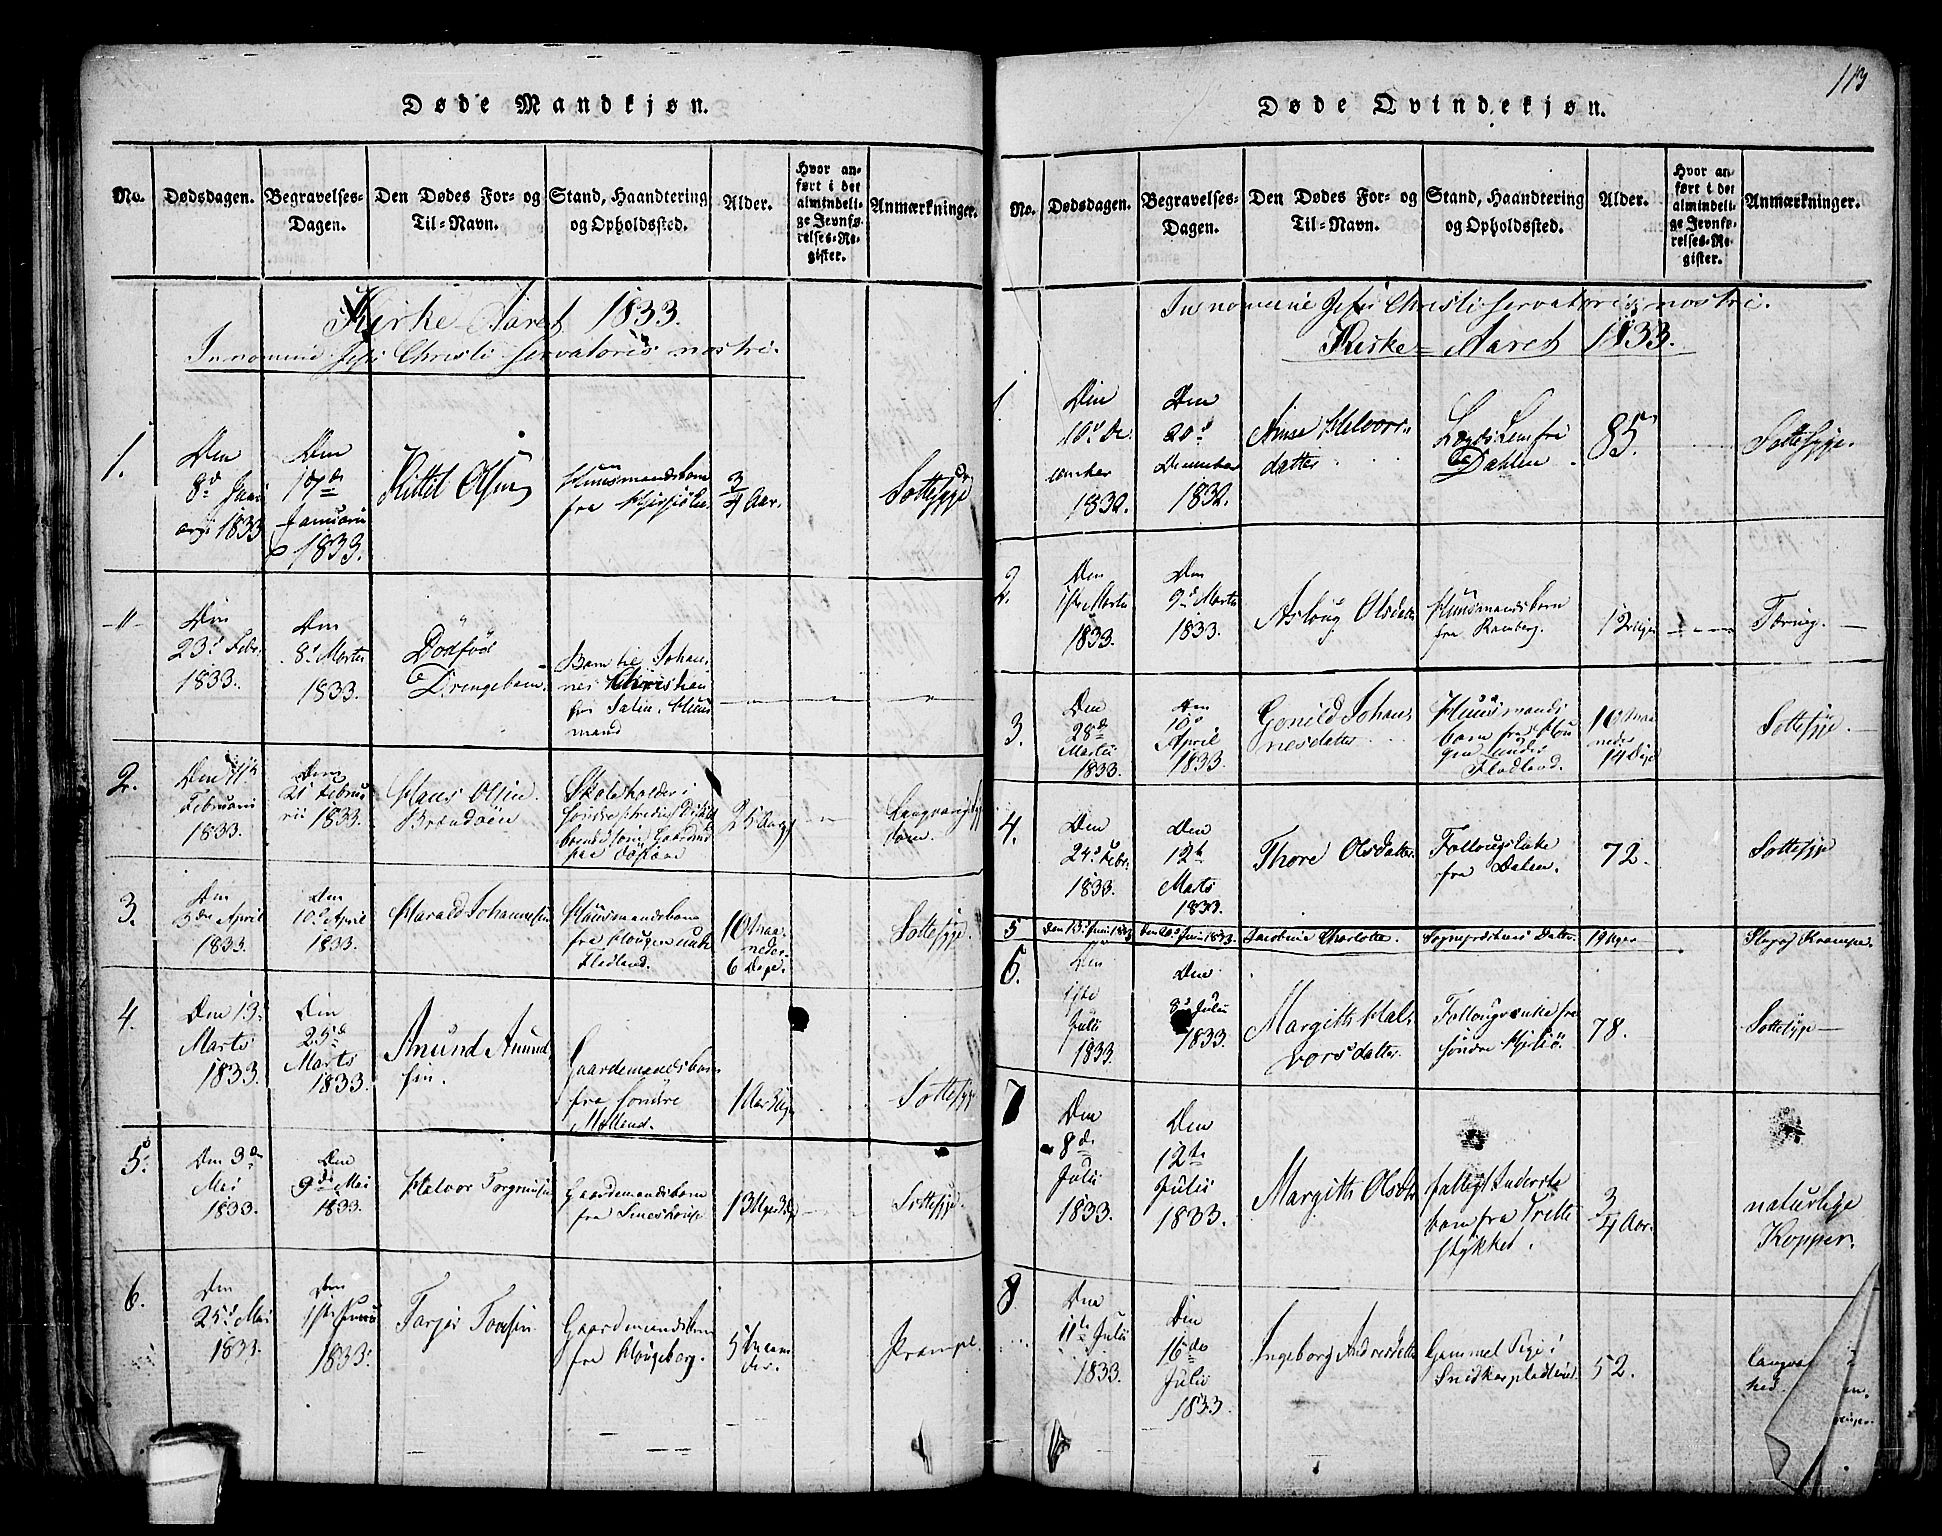 Døde Mandkjøn.
No.
Dødsdagen.
Begravelses-
Dagen.
Den Dødes For- og
Til-Navn.
Stand, Haandtering
og Opholdssted.
Alder.
Hvor an-
ført i det
almindeli-
ge Jevnfø-
relses-Re-
gister.
Anmærkninger.
Kirke-Aaret 1833.
In nomine Jesu Christi servatoris nostri.
1.
Den
8d Janu
arii 1833
Den
17de
Januarii
1833.
Kittel Olsen
Huusmandsbarn
fra
3/4 Aar.
Sottesyge
-"-
Den
23d Febr.
1833.
Den
8d Marts
1833.
Dödfös
Drengebarn.
Barn til Johan
nes Christen
sen Huus
mand
2.
Den 11te
Februarii
1833.
Den
21 Februa
rii 1833.
Hans Olsen
Skoleholder i
söndre
25
Langvarig
3.
Den
3de April
1833.
Den
10d April
1833.
Harald Johannesen
Huusmandsbarn
fra Hougen under
Fladland.
10 Maa
neder
6 Dage.
Sottesyge.
4.
Den 13.
Marts
1833.
Den
25d
Marts
1833.
Anund Anund
sen.
Gaardemandsbarn
fra söndre
Molland.
1 Aar 3 Uger
Sottesyge
5.
Den 3de
Mai
1833.
Den
9de Mai
1833.
Halvor Torgrimsen
Gaardemandsbarn
fra
13 Uger
Sottesyge
6.
Den
25d Mai
1833.
Den
1ste Junii
1833.
Tarjei Tovesen
Gaardemandsbarn
fra Hougeborg.
5 Maane
der.
Krampe.
113
Døde Qvindekjøn.
No.
Dødsdagen.
Begravelses-
Dagen.
Den Dødes For- og
Til-Navn.
Stand, Haandtering
og Opholdssted.
Alder.
Hvor an-
ført i det
almindeli-
ge Jevnfø-
relses-Re-
gister.
Anmærkninger.
In nomine Jesu Christi servatoris nostri.
Kirke-Aaret 1833.
1.
Den
19d De
cember
1832.
Den
20d
December
1832.
Anne Helvors
datter
Lægdslem fra
Dahlen.
85.
Sottesyge.
2.
Den
1ste Marts
1833.
Den
9d Marts
1833.
Asloug Olsdatter
Huusmandsbarn
fra Ramberg.
12 Uger
Tæring.
3.
Den
28de
Martii
1833.
Den
10d
April
1833.
Gonild Johan
nesdatter
Huusmands
barn fra Hou
gen under
Fladland.
10 Maa
neder
14 Dage
Sottesyge.
4.
Den
24d Febr.
1833.
Den
12te
Marts
1833.
Thore Olsdatter
Follougsenke
fra Dalen.
72.
Sottesyge
5
Den 13. Juni 1833
Den 20d Juni 1833.
Jacobine Charlotte.
Sognepræstens Datter.
19 Uger
Slag og Krampe.
6.
Den
1ste
Juli
1833.
Den
8d Julii
1833.
Margith Hal
vorsdatter.
Follougsenke fra
söndre
78.
Sottesyge
7
Den
8de
Julii
1833.
Den
12te
Julii
1833.
Margith Olsdtr
Inderste
barn fra Trette
stykket.
3/4 Aar.
naturlige
Kopper.
8
Den
11te Julii
1833.
Den
16de
Julii
1833.
Ingeborg Andresdatter
Gammel Pige i
Snidkerpladsen
52.